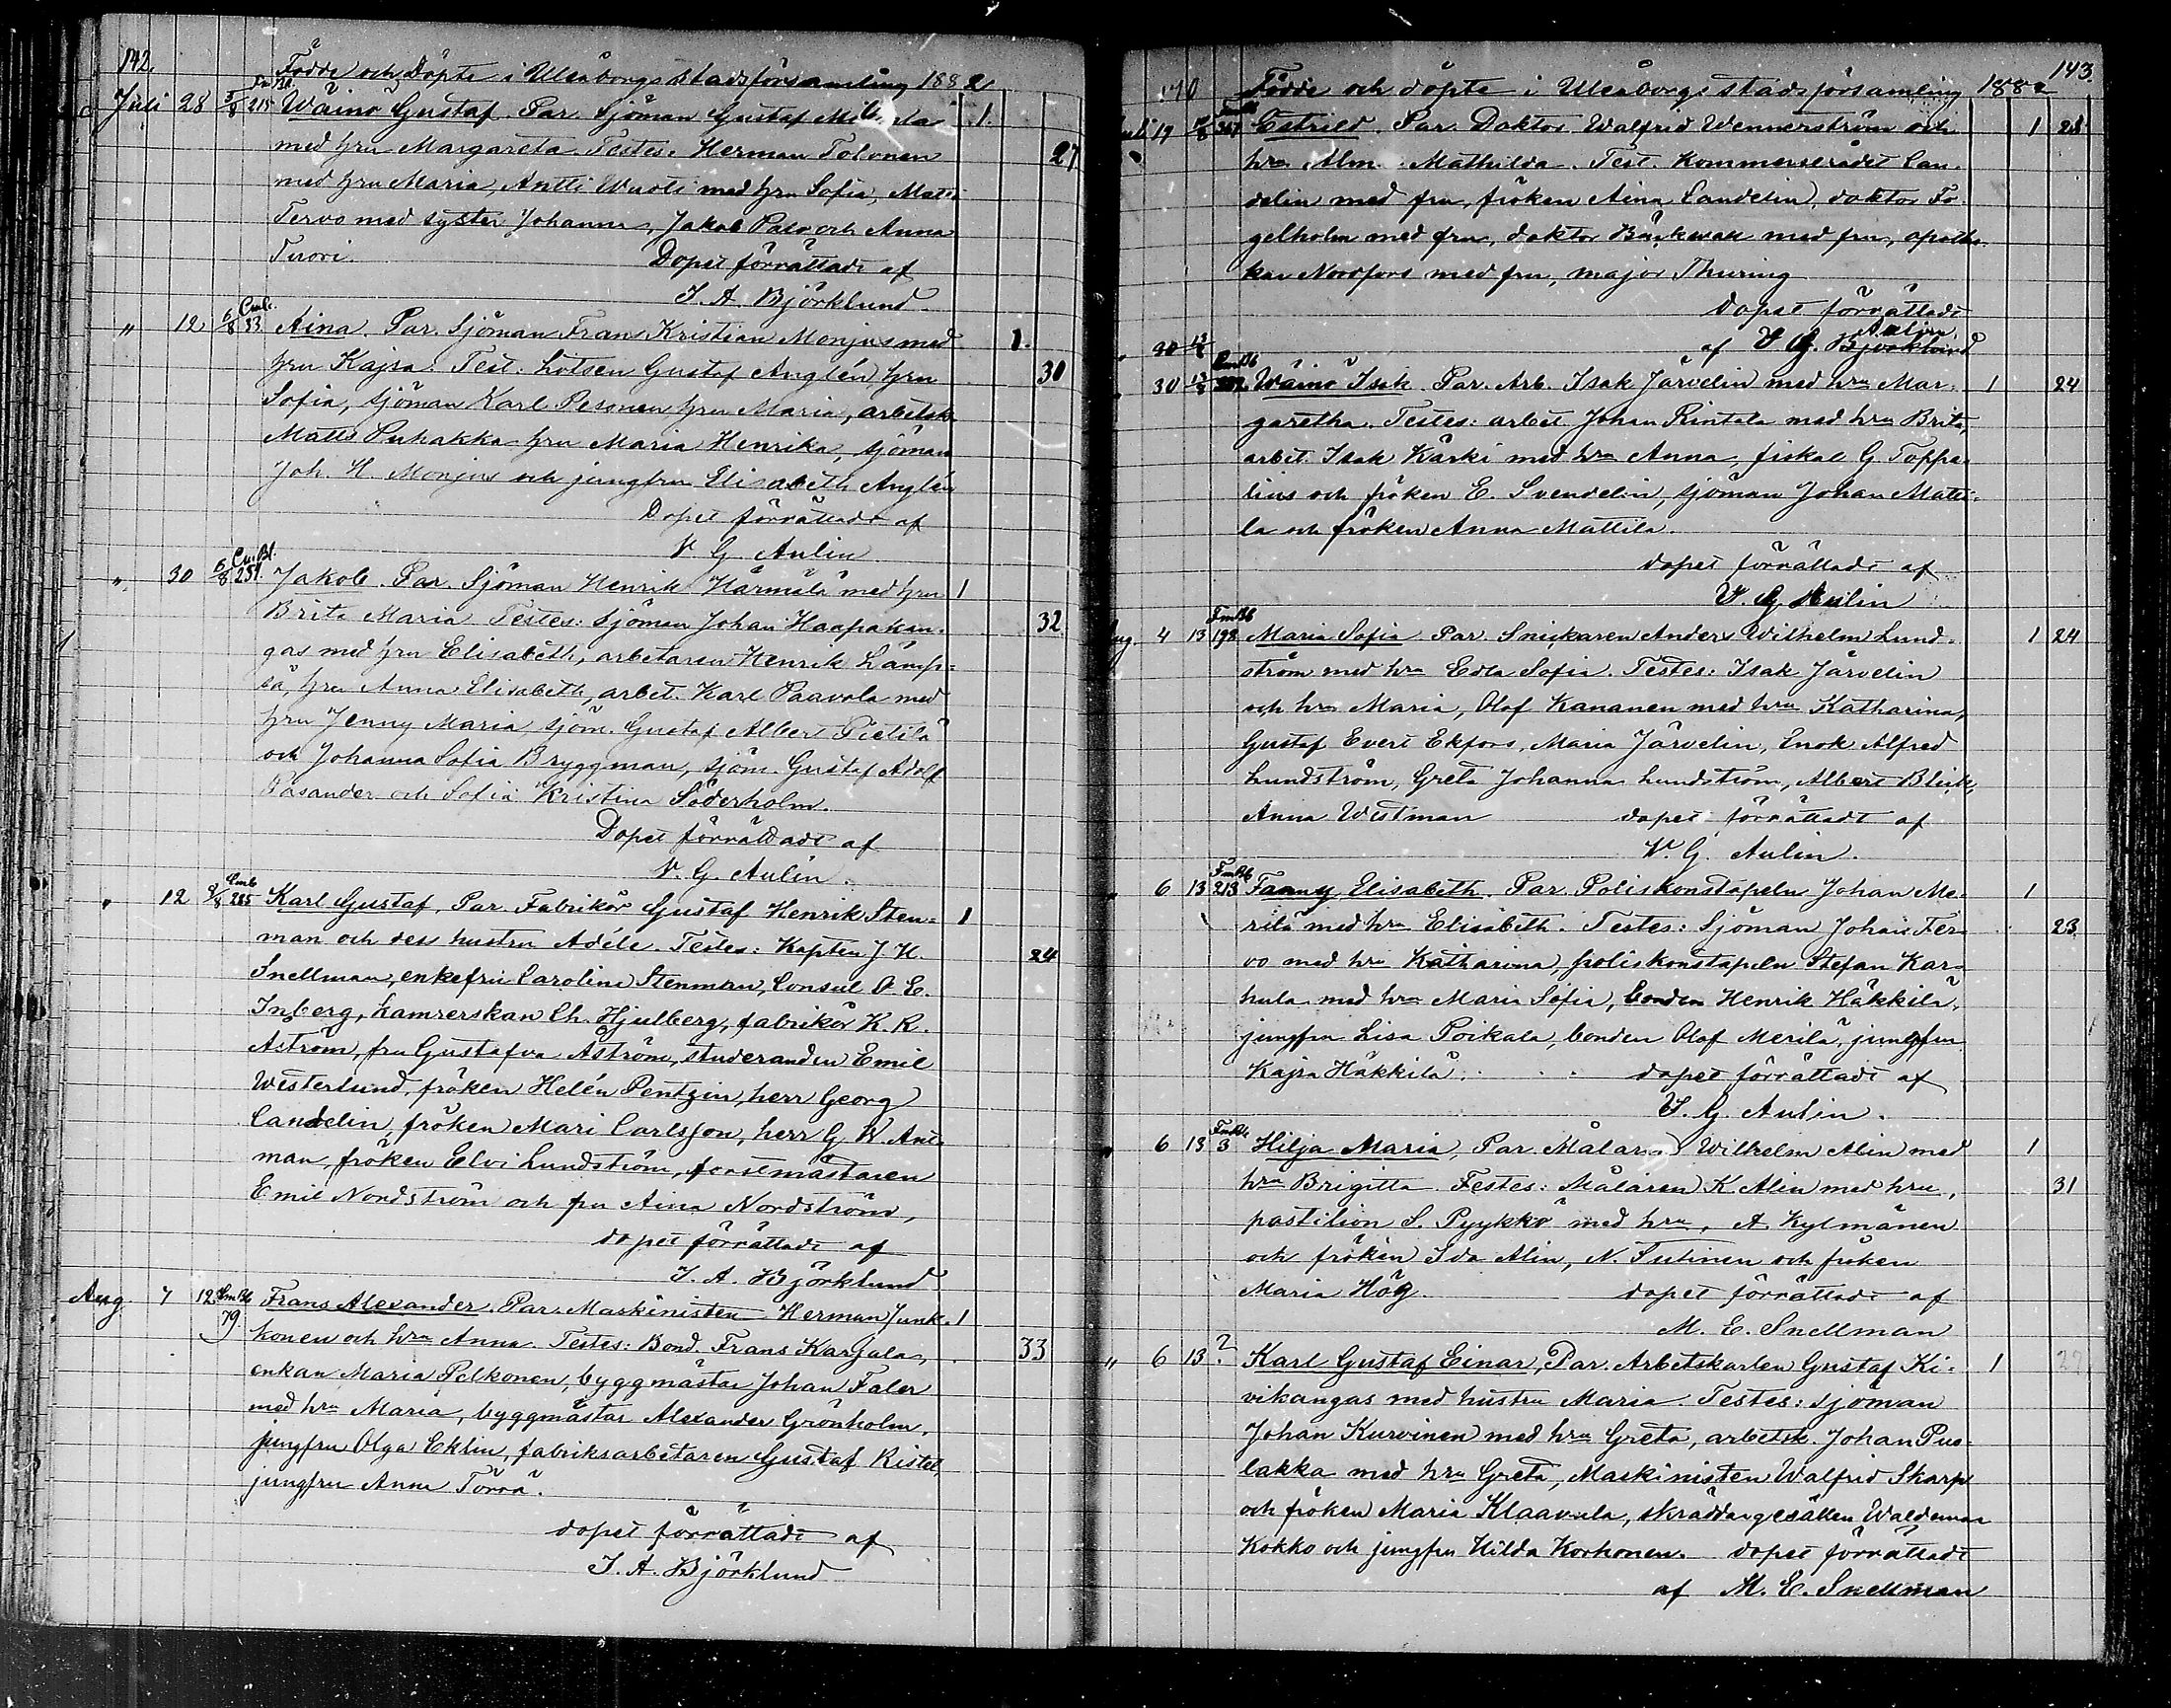 142.
Födde och Döpte i Uleåborgs stadsförsamling 1882
Juli 28 5/8 215 Wäinö Gustaf. Par. Sjöman Gustaf 1.
med hru Margareta. Testes. Herman Tolonen 27
med hru Maria, Antti Wuoti med hru Sofia, Matts
Tervo med syster Johanna, Jakob Paso och Anna
Tuori. Dopet förrättadt af
J. A. Björklund.
" 12 6/8 33 Aina. Par. Sjöman Frans Kristian Monjus med 1.
hru Kajsa. Test. Lotsen Gustaf Anglén hru 30
Sofia, sjöman Karl Pesonen hru Maria, arbetsk.
Matts Puhakka hru Maria Henrika, sjöman
Joh. H. Monjus och jungfru Elisabeth Anglén
Dopet förrättadt af
V. G. Aulin
" 30 6/8 251. Jakob. Par. Sjöman Henrik Härmälä med hru 1
Brita Maria Testes: Sjöman Johan Haapakan- 32
gas med hru Elisabeth, arbetaren Henrik Lämp-
sä, hru Anna Elisabeth, arbet. Karl Paavola med
hru Jenny Maria, sjöm. Gustaf Albert Pietilä
och Johanna Sofia Bryggman, sjöm. Gustaf Adolf
Pasander och Sofia Kristina Söderholm.
Dopet förrättadt af
V. G. Aulin.
" 12 9/8 285 Karl Gustaf, Par. Fabrikör Gustaf Henrik Sten- 1
man och dess hustru Adéle. Testes: Kapten J. H. 24
Snellman, enkefru Carolina Stenman, Consul A. E.
Inberg, kamrerskan Ch. Hjulberg, fabrikör K. R.
Åström, fru Gustafva Åström, studeranden Emil
Westerlund, fröken Helén Pentzin, herr Georg
Candelin, fröken Mari Carlsson, herr G. W. Ant-
man, fröken Elvi Lundström, forstmästaren
Emil Nordström och fru Aina Nordström,
dopet förrättadt af
J. A. Björklund
Aug. 7 12 79 Frans Alexander. Par. Maskinisten Herman Junk- 1
konen och hru Anna. Testes: Bond. Frans Karjala, 33
enkan Maria Pelkonen, byggmästar Johan Faler
med hru Maria, byggmästar Alexander Grönholm,
jungfru Olga Eklin, fabriksarbetaren Gustaf Ristel,
jungfru Anna Törrö.
dopet förrättadt af
J. A. Björklund
143.
Födde och döpte i Uleåborgs stadsförsamling 1882
Juli 19 Estrild. Par. Doktor Walfrid Wennerström och 1 28
hru Alm. Mathilda. Test. Kommerserådet Can-
delin med fru, fröken Aina Candelin, doktor Fo-
gelholm med fru, doktor Bäckman med fru, apothe-
kar Nordfors med fru, major Thuring
dopet förrättadt
af V. G. Aulin Björklund
" 30 13/8
" 30 13/8 Wäinö Isak. Par. Arb. Isak Järvelin med hru Mar- 1 24
garetha. Testes: arbet. Johan Rintala med hru Brita,
arbet. Isak Kärki med hru Anna, fiskal G. Toppe-
lius och fröken E. Svendelin, sjöman Johan Matti-
la och fröken Anna Mattila.
dopet förrättadt af
V. G. Aulin
Aug. 4 13 198 Maria Sofia. Par. Snickaren Anders Wilhelm Lund- 1 24
ström med hru Edla Sofia. Testes: Isak Järvelin
och hru Maria, Olof Kananen med hru Katharina,
Gustaf Evert Ekfors, Maria Järvelin, Enok Alfred
Lundström, Greta Johanna Lundström, Albert Blick,
Anna Westman dopet förrättadt af
V. G. Aulin.
" 6 13 213 Fanny Elisabeth. Par. Poliskonstapeln Johan Me- 1
rilä med hru Elisabeth. Testes: Sjöman Johan Ter- 23
vo med hru Katharina, poliskonstapeln Stefan Kar-
hula med hru Maria Sofia, bonden Henrik Häkkilä,
jungfru Lisa Poikala, bonden Olof Merilä, jungfru
Kajsa Häkkilä. dopet förrättadt af
V. G. Aulin.
" 6 13 3 Hilja Maria, Par. Målaren Wilhelm Alin med 1
hru Brigitta. Testes: Målaren K. Alin med hru, 31
postilion S. Pyykkö med hru, A. Kylmänen
och fröken Ida Alin, N. Tutinen och fröken
Maria Hög. dopet förrättadt af
M. E. Snellman
" 6 13 ? Karl Gustaf Einar, Par. Arbetskarlen Gustaf Ki- 1 27
vikangas med hustru Maria. Testes: sjöman
Johan Kurvinen med hru Greta, arbetsk. Johan Puo-
lakka med hru Greta, Maskinisten Walfrid Skarp
och fröken Maria Klaavula, skräddargesällen Waldemar
Kokko och jungfru Hilda Korhonen. dopet förrättadt
af M. E. Snellman